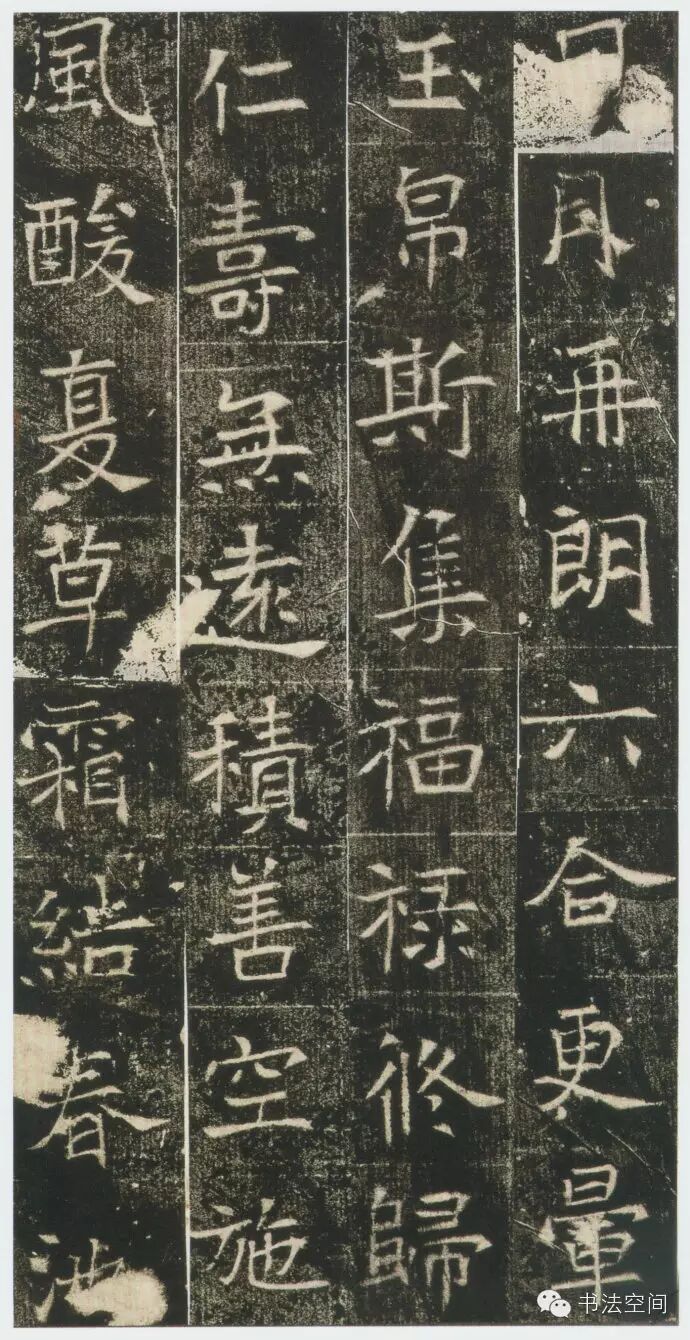 日月再朗六合更暈
玉帛斯集福禄俢歸
仁壽無遠積善空施
風酸夏草霜結春池
书法空间